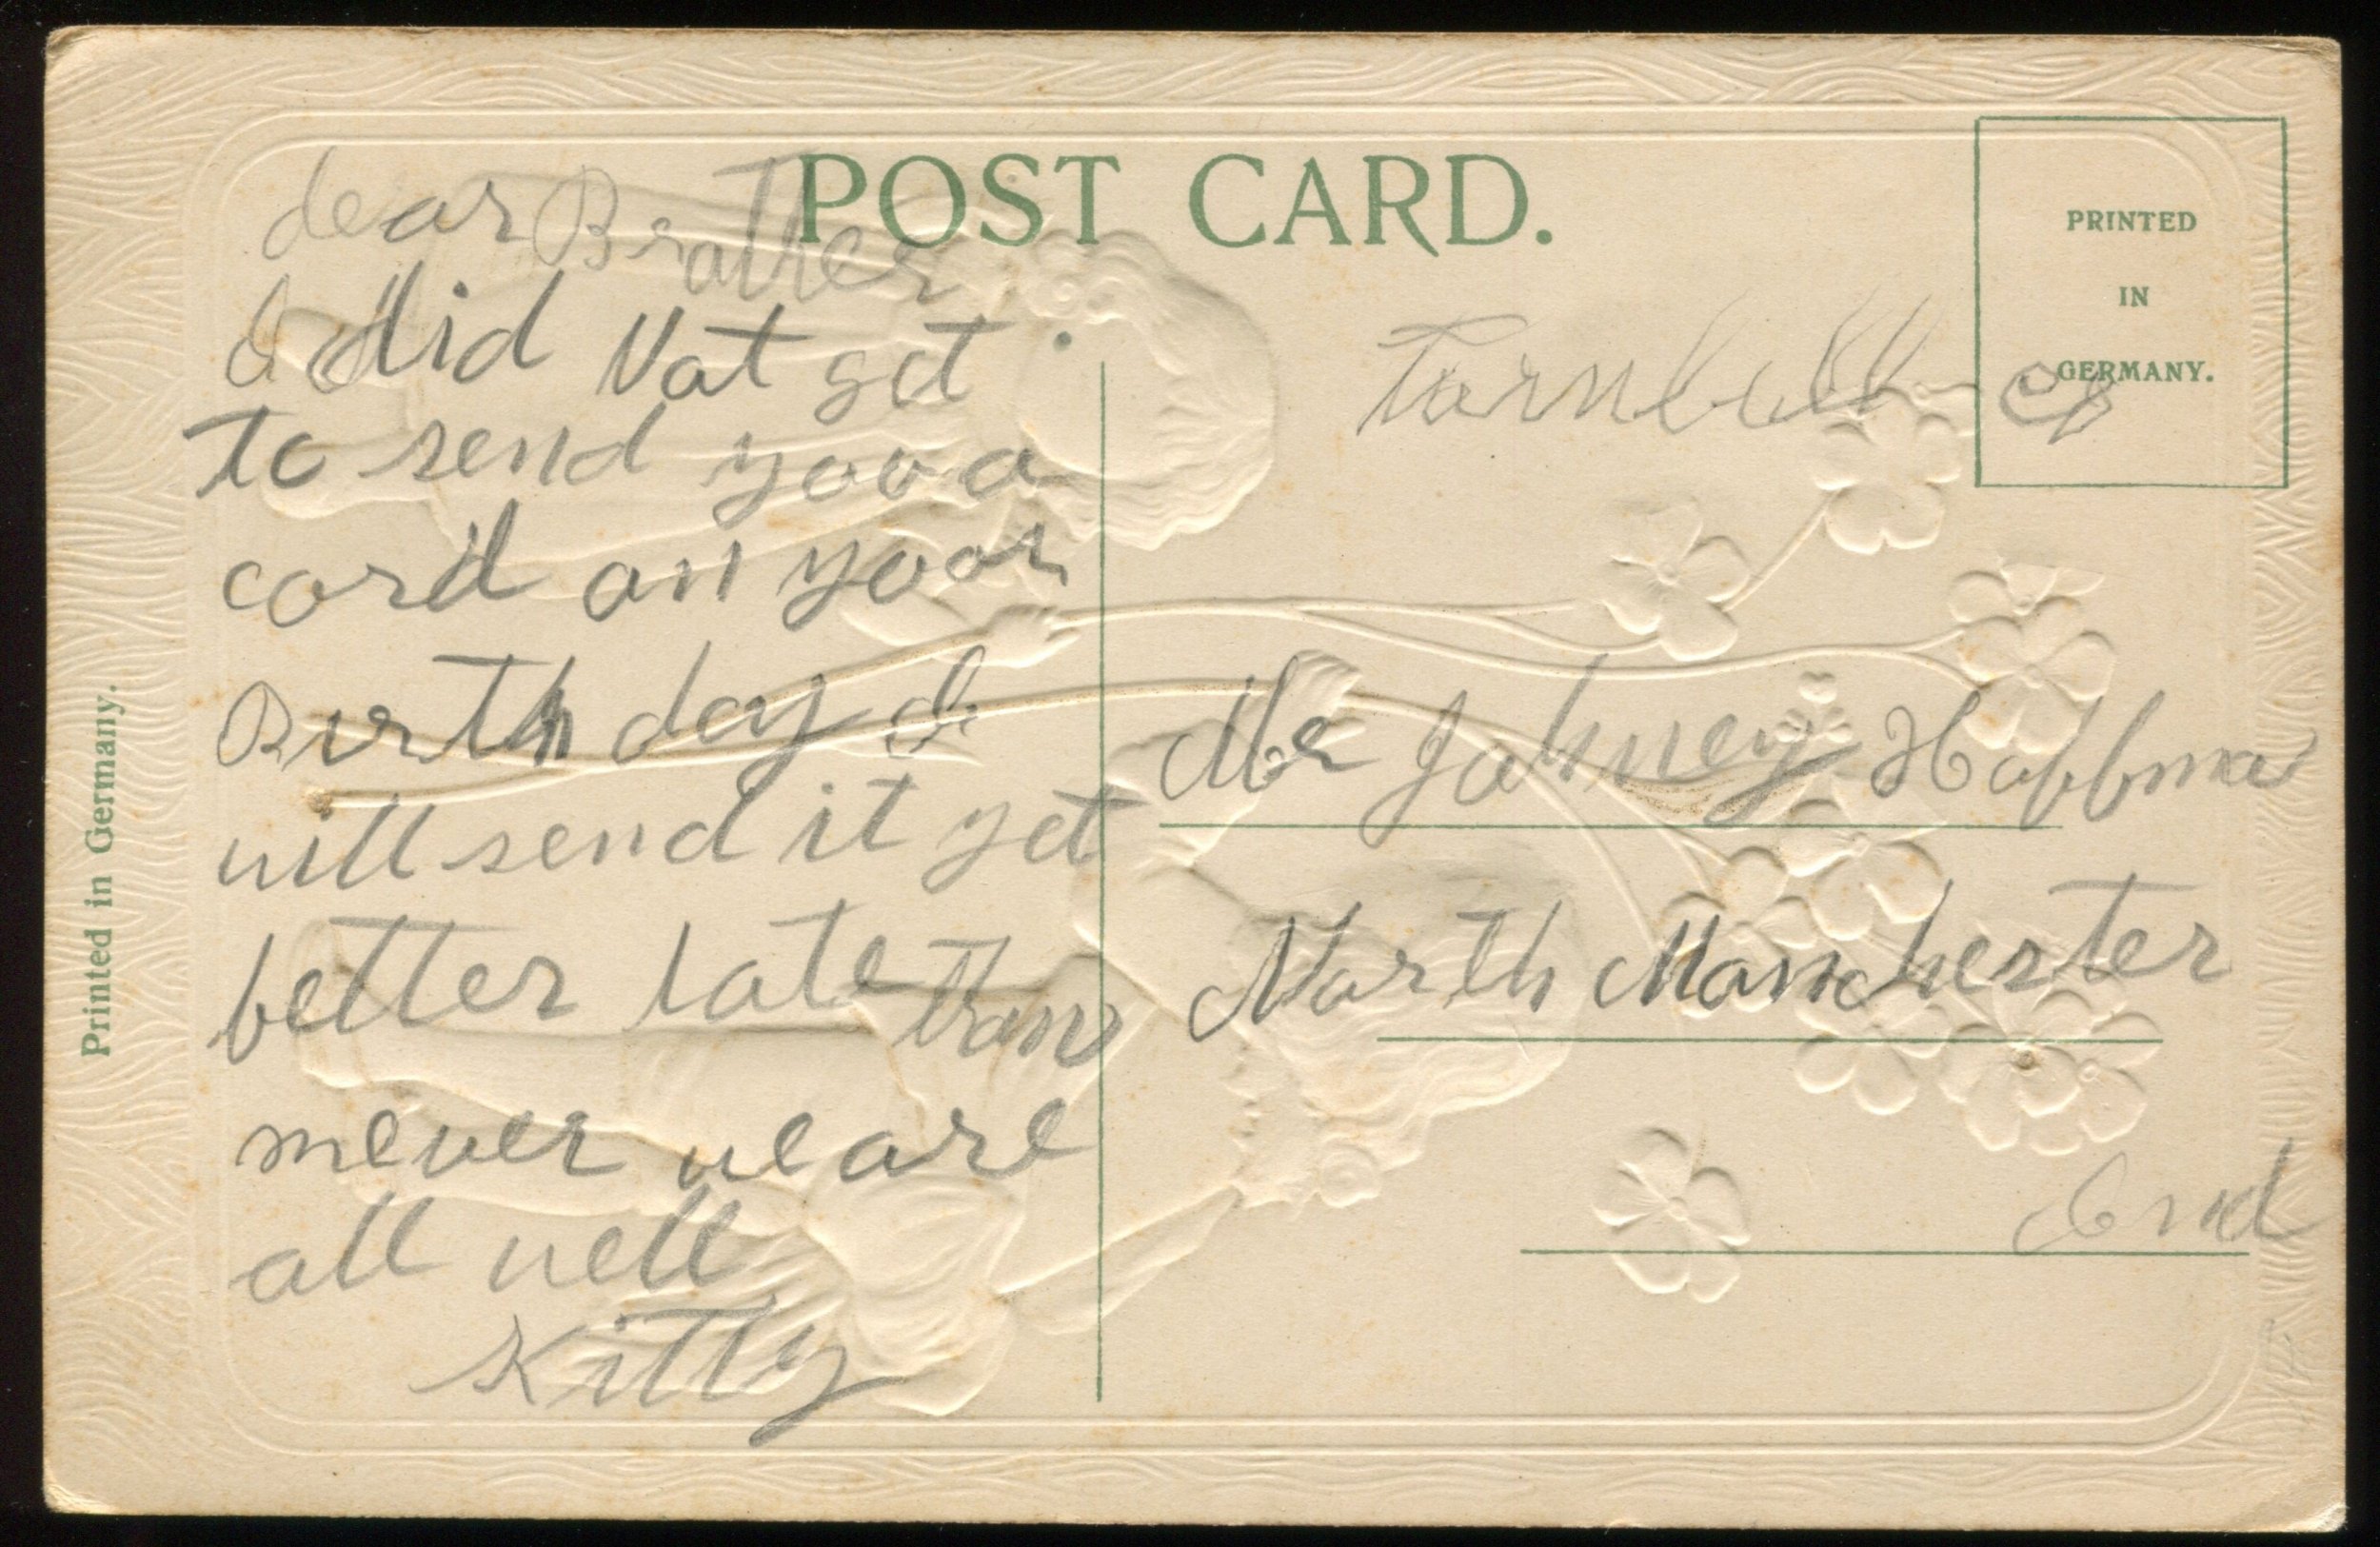 POST CARD.
PRINTED
IN
GERMANY.
Printed in Germany.
dear Brother
I did Not get
to send yoo a
card on yoor
Birthday I
will send it yet
better late than
never we are
all well
Kitty
Turnbull
Mr Johney Hoffman
North Manchester
Ind